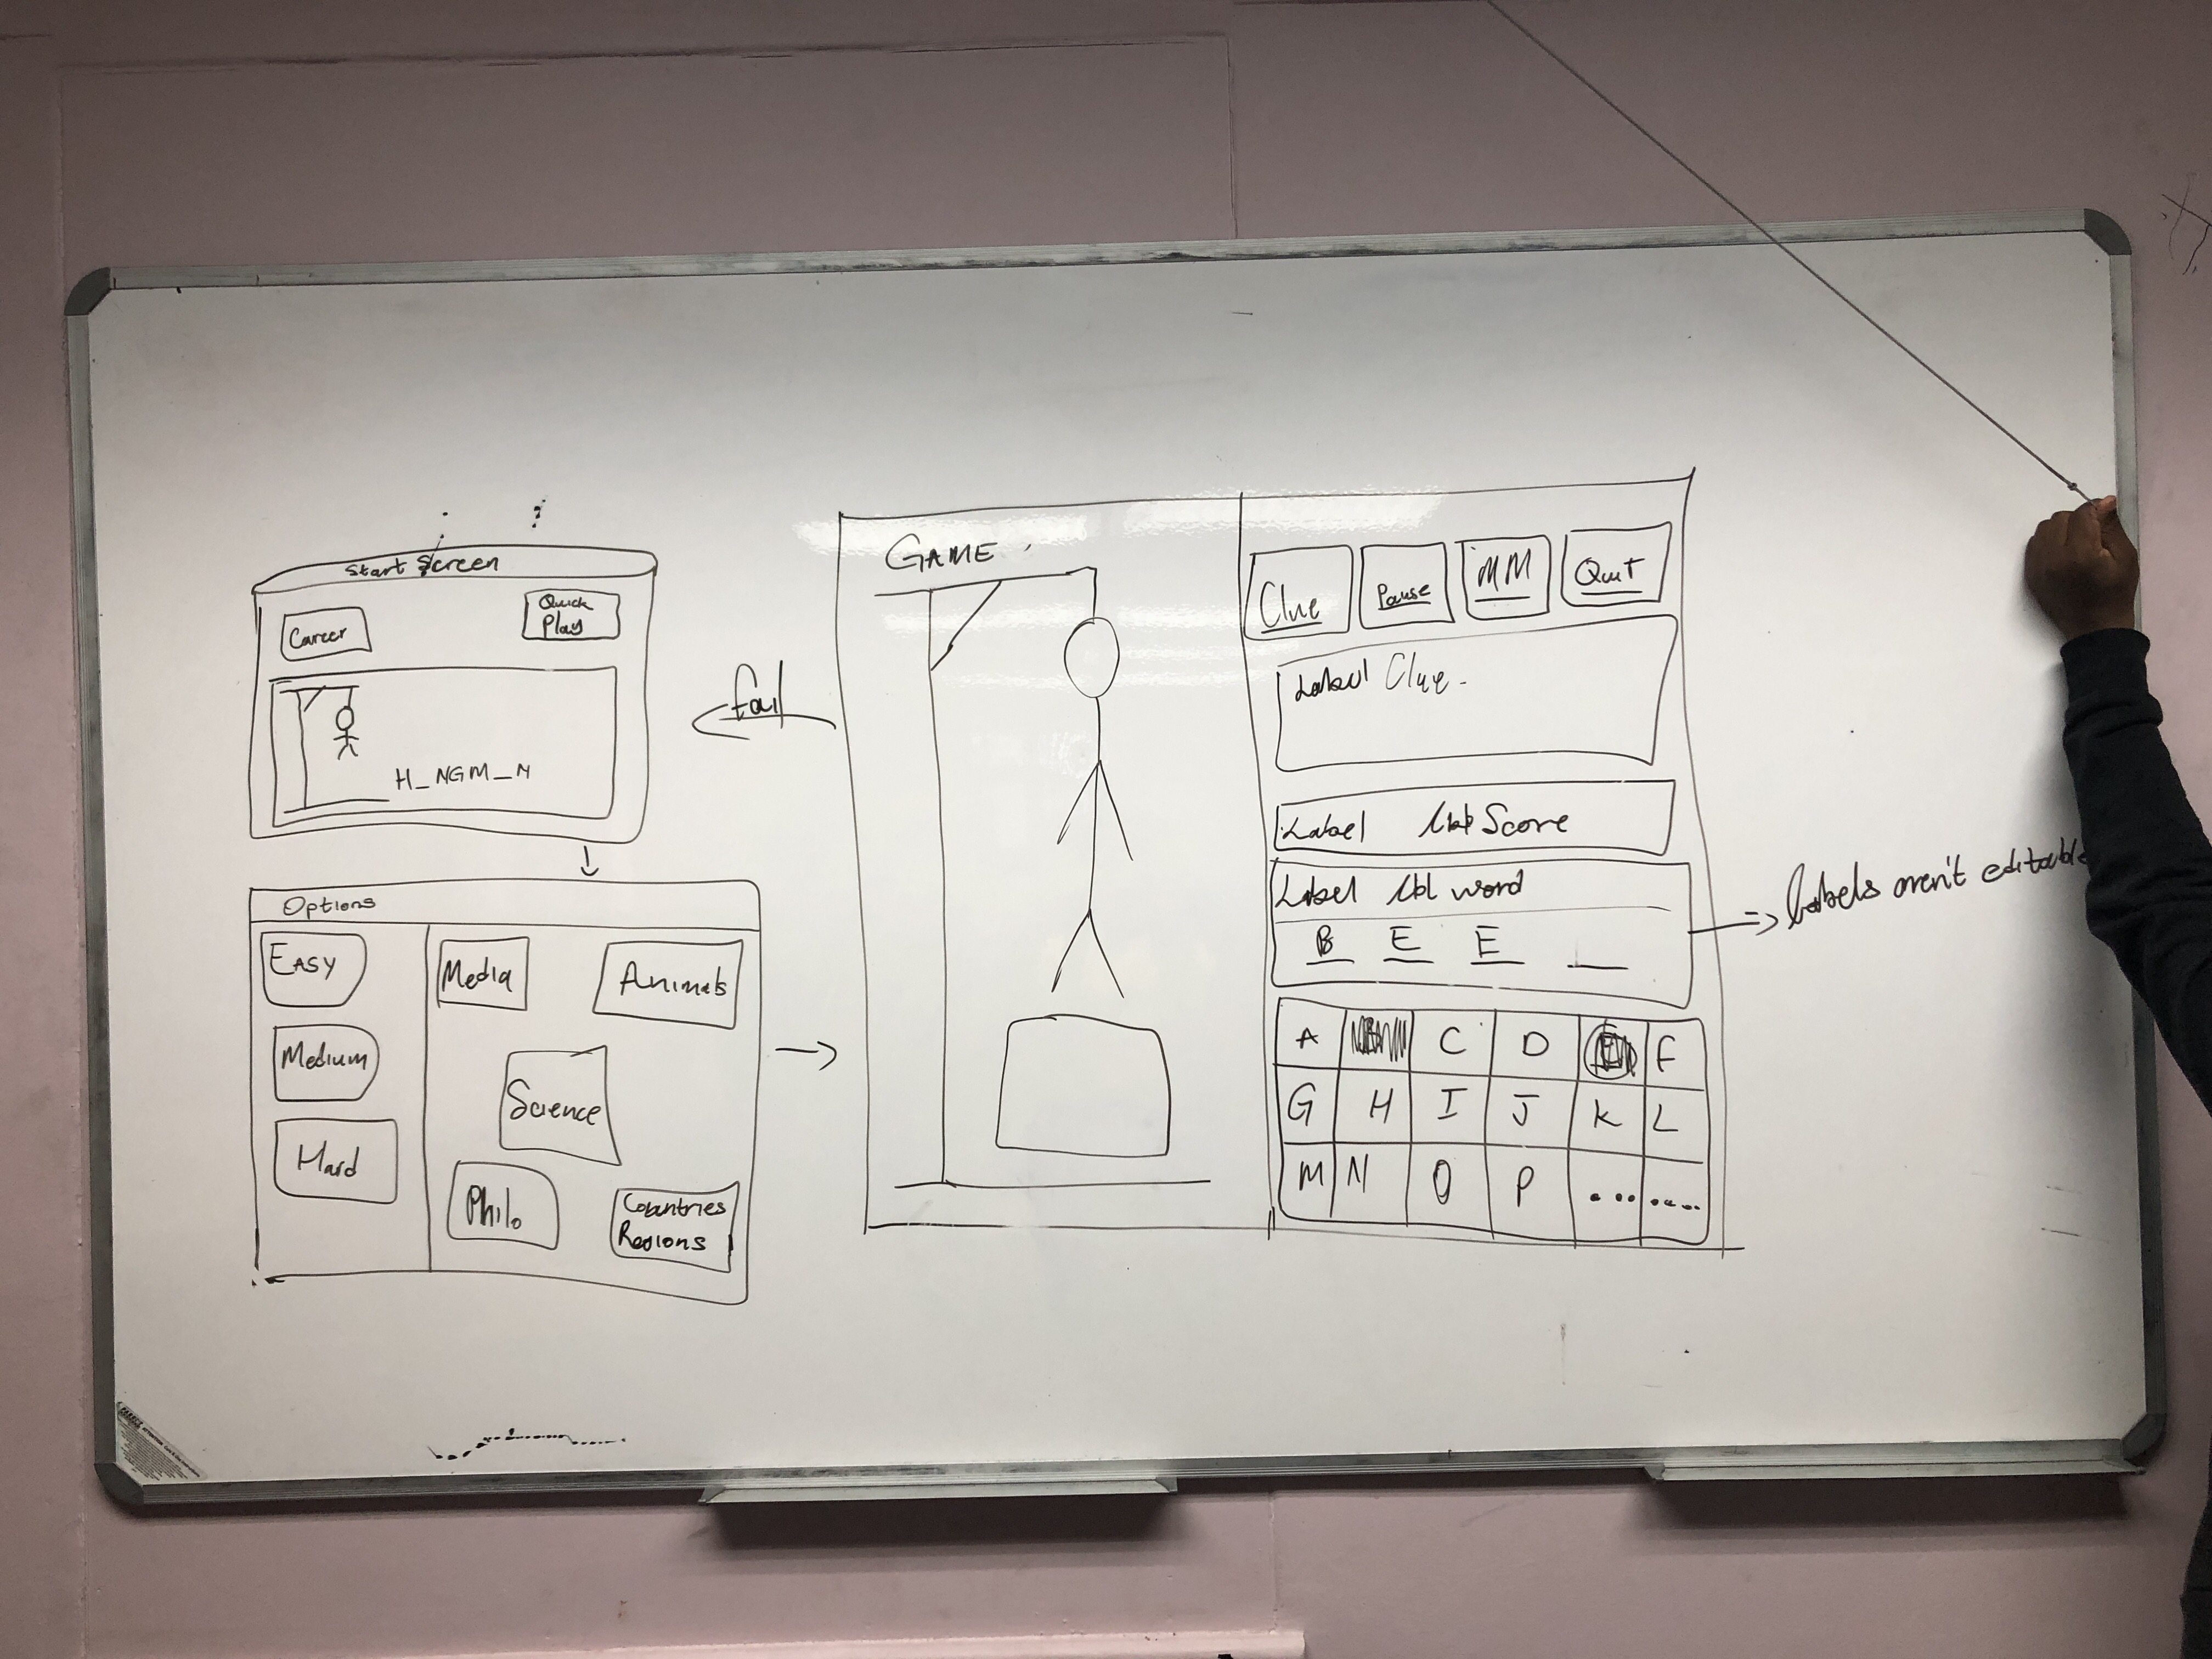 Start Screen
Career
Quick
Play
H_NGM_N
Options
EASY
Medium
Hard
Media
Animals
Science
Philo
Countries
Regions
fail
GAME
Clue
Pause
MM
Quit
Label Clue
Label lbl Score
Label lbl word
B E E _
A C D E F
G H I J K L
M N O P .... ....
=> labels aren't editable